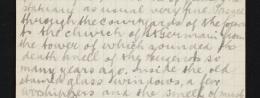 statuary as usual very fine. Passed
through the courtyards of the Louvre
to the church of St Germain from
the tower of which sounded the
death knell of the Huguenots so
many years ago. Inside the old
stained glass windows, a few
worshipers and the smell of